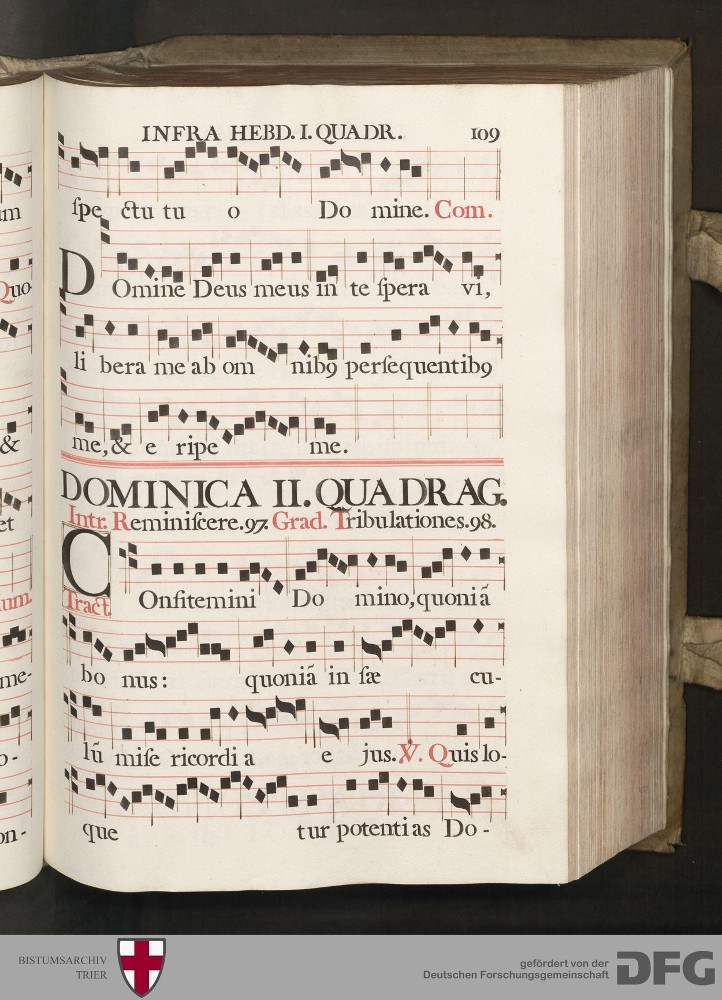 INFRA HEBD. I. QUADR. 109
ſpe ctu tu o Do mine. Com.
DOmine Deus meus in te ſpera vi,
li bera me ab om nibꝯ perſequentibꝯ
me, & e ripe me.
DOMINICA II. QUADRAG.
Intr. Reminiſcere. 97. Grad. Tribulationes. 98.
Tract. COnfitemini Do mino, quoniā
bo nus: quoniā in ſæ cu-
lū miſe ricordi a e jus. ℣. Quis lo-
que tur potenti as Do-
um
Quo-
&
et
um.
me-
o-
on-
BISTUMSARCHIV
TRIER
gefördert von der
Deutschen Forschungsgemeinschaft
DFG